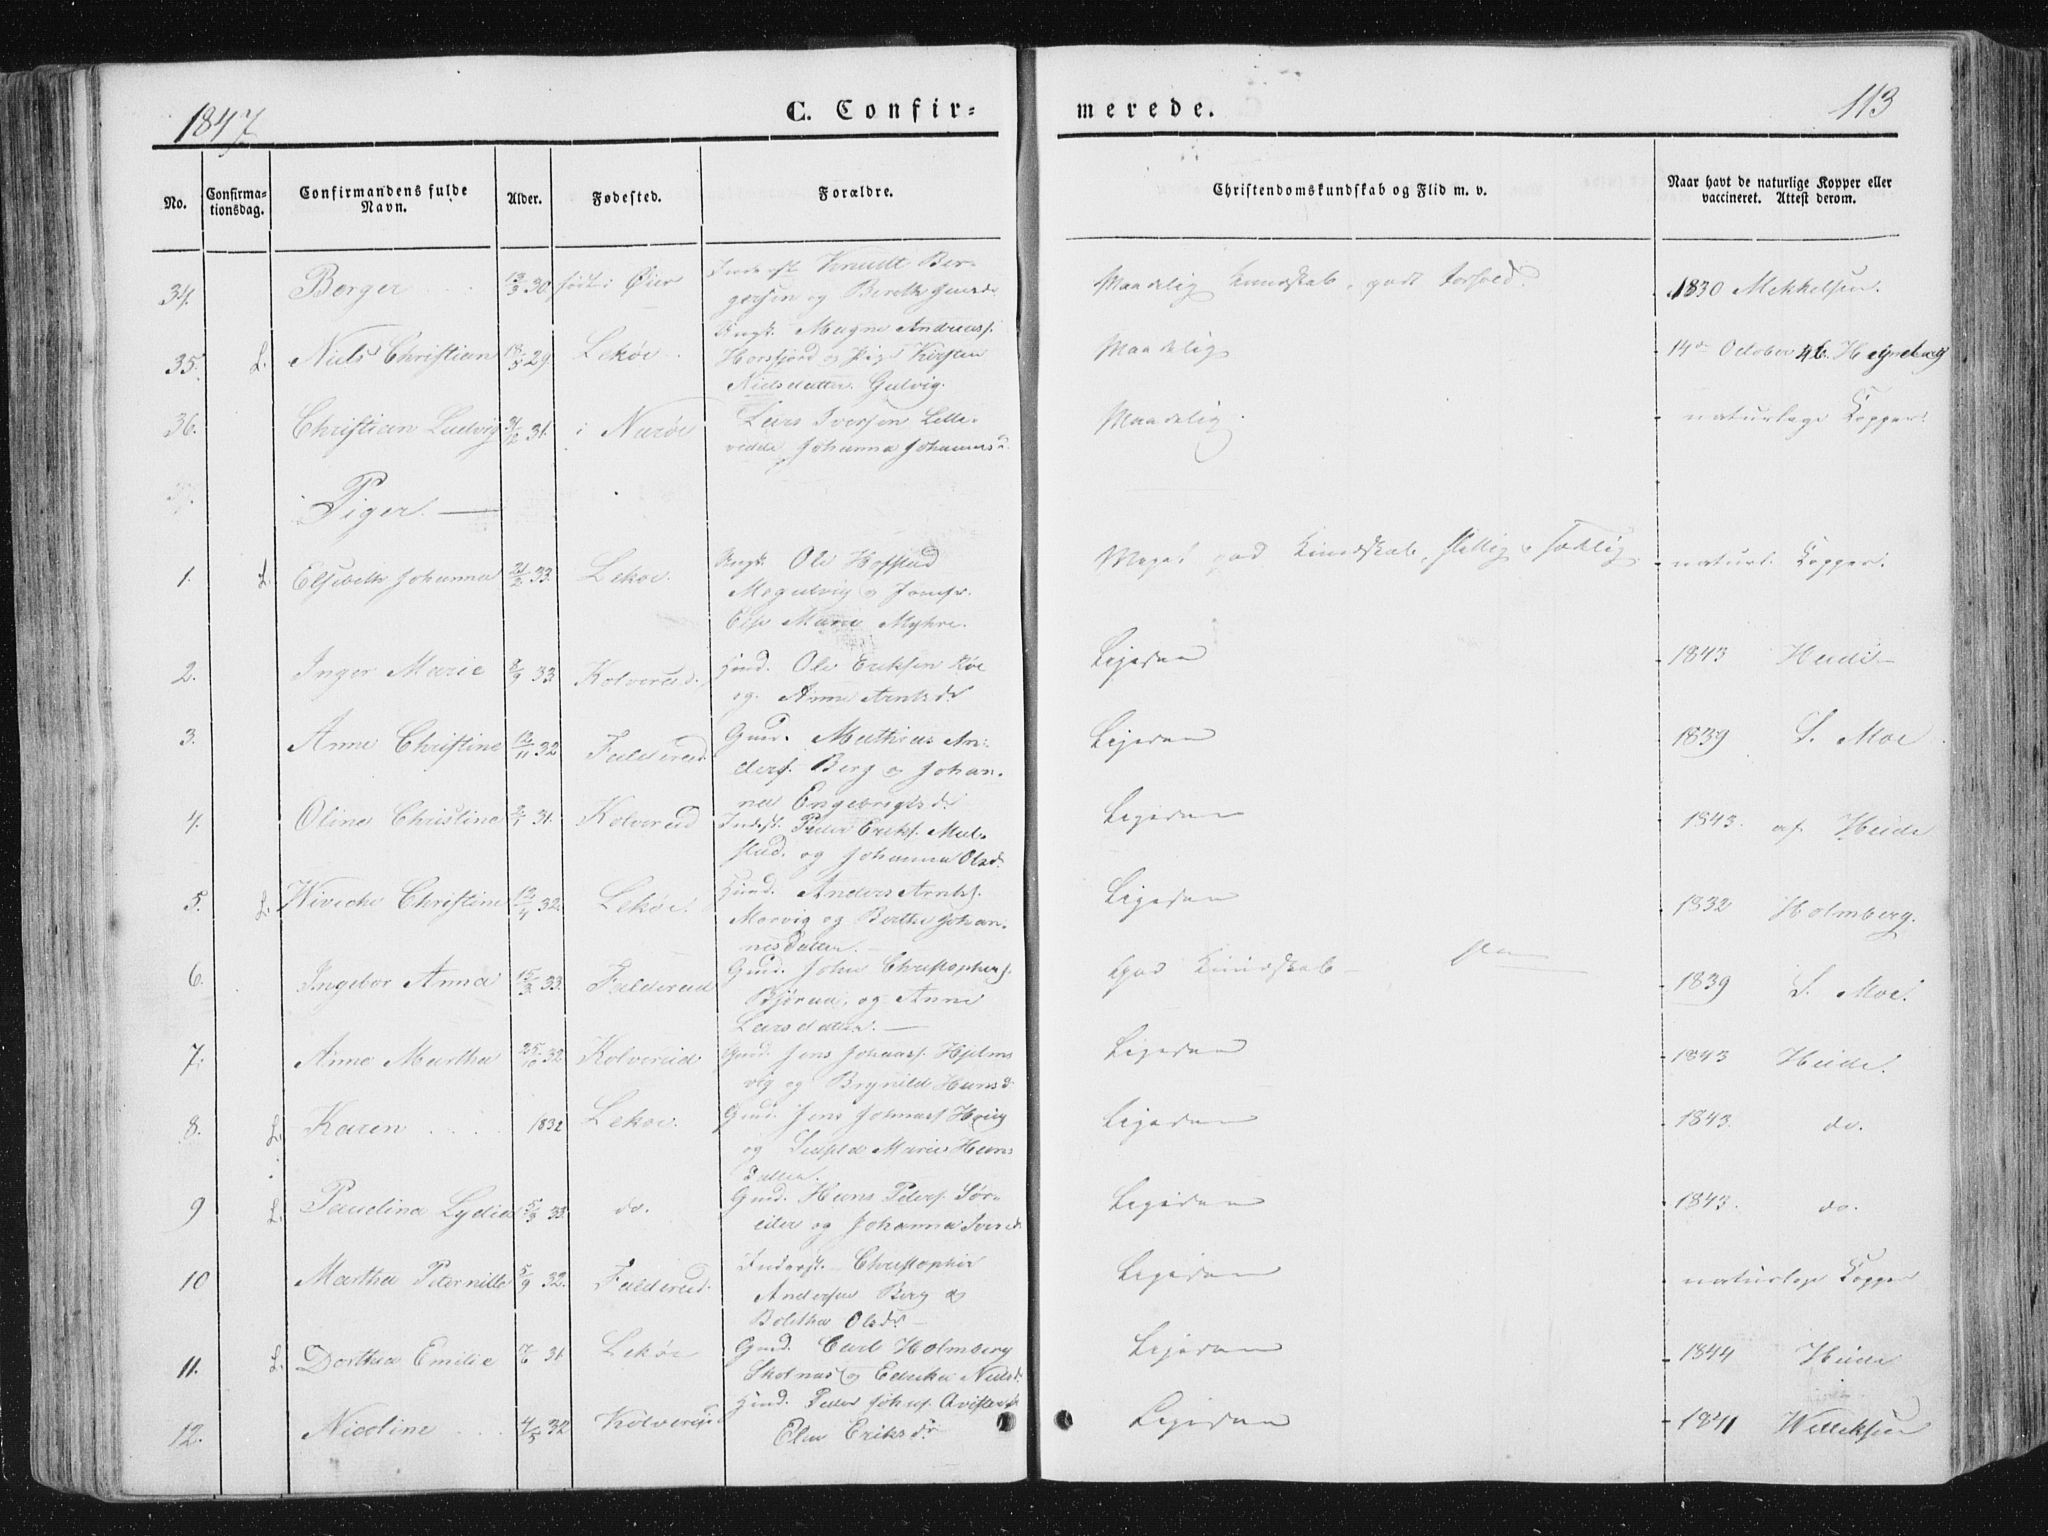 1847
C. Confir-
merede.
113
No.
Confirma-
tionsdag.
Confirmandens fulde
Navn.
Alder.
Fødested.
Forældre.
Christendomskundskab og Flid m. v.
Naar havt de naturlige Kopper eller
vaccineret. Attest derom.
34. Berger 13/3 30 født i Øier Knudt Ber-
gersen og Bereth
Maadelig Kundskab, godt Forhold. 1830 Mekkelsen.
35. L. Niels Christian 18/5 29. Lekøe Magne Andreass.
Horsfjord og Pige Kirsten
Nielsdatter Gulvig.
Maadelig 14de October 46. Heyerdag
36. Christian Ludvig 31/12 31. i Nærøe Lars Iversen
Johanna Johannesd.
Maadelig. naturlige Kopper.
Piger.
1. L. Elsebeth Johanna 21/2 33. Lekøe Ole Hoffstad
og Jomfr.
Else Marie Myhre.
Meget god Kundskab, flittig naturl. Kopper.
2. Inger Marie 8/9 33 Kolvereid. Huusd. Ole Eriksen Røe
og Anne Arntsdr
Ligesaa 1843 Heide
3. Anne Christine 12/11 32 Foldereid Gmd. Mathias An-
ders. Berg og Johan-
na Engebrigtsdr
Ligesaa 1839 S. Moe
4. Oline Christine 2/1 31. Kolvereid Inderst. Peder Eriks. Mul-
stad. og Johanna Olsd.
Ligesaa 1843. af Heide
5. L. Wiveche Christine 12/4 32. Lekøe. Huusd. Anders Arnts.
Morvig og Berthe Johan-
nesdatter.
Ligesaa 1832 Holmberg.
6. Ingebor Anna 15/3 33. Foldereid Gmd. John Christophers.
og Anne
Larsdatter.
God Kundskab 1839 S. Moe.
7. Anne Martha 25/10 32. Kolvereid Gmd. Jens Johnss. Hjelms
vig og Brynild Hansd.
Ligesaa 1843 Heide.
8. L. Karen 1832 Lekøe. Gmd. Jens Johnss.
og Marie Hans
datter.
Ligesaa 1843. do.
9 L. Paulina Lydia 5/3 33. do. Gmd. Hans Peders. Sør-
eider og Johanna Iversd.
Ligesaa 1843. do.
10 Martha Peternille 5/9 32. Foldereid. Inderst. Christopher
Andersen Berg og
Bolitha Olsdr
Ligesaa naturlige Kopper
11. L. Dorthea Emilie 17/6 31. Lekøe Gmd. Carl Holmberg
Skolnas og Edicka Nielsd.
Ligesaa 1844 Heide
12. Nicoline 4/5 32 Kolvereid Huusd. Peder Johns.
Elen Eriksdr
Ligesaa 1841 Willeksen